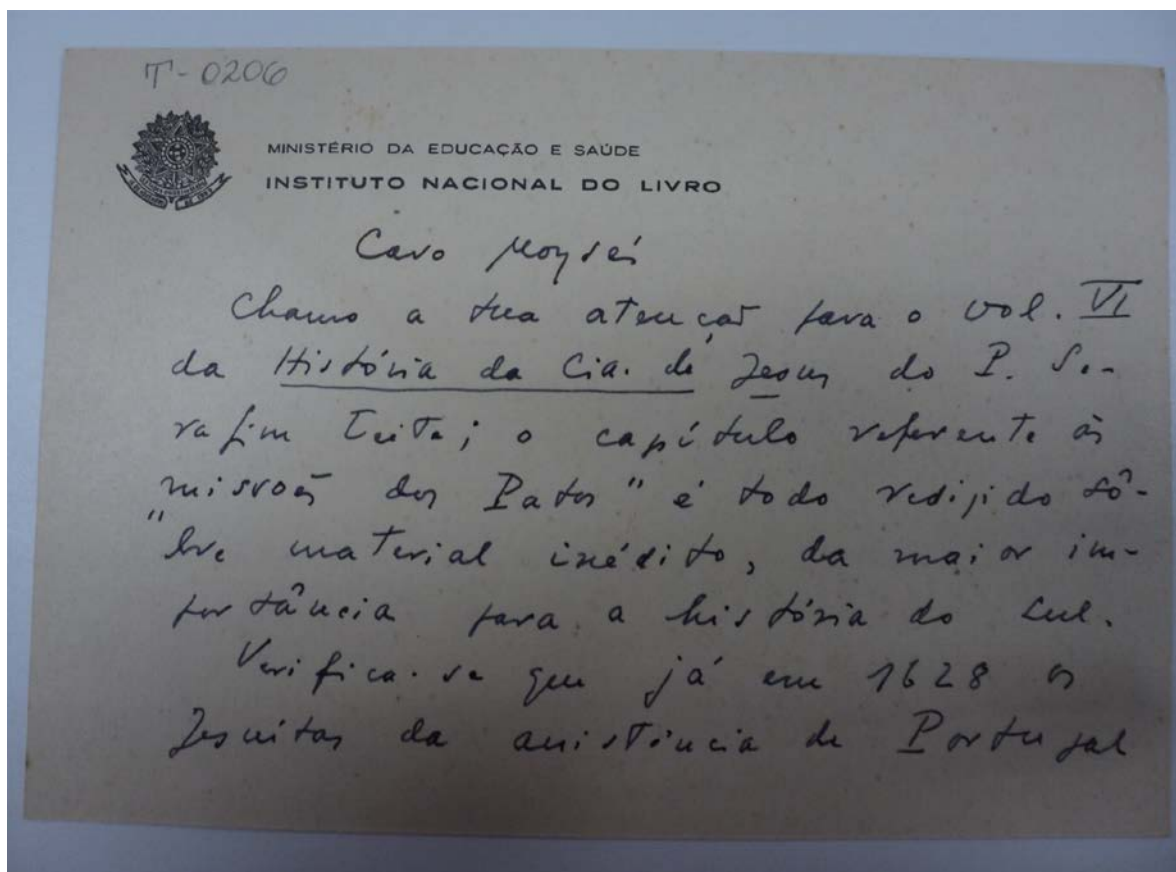 T-0206
MINISTÉRIO DA EDUCAÇÃO E SAÚDE
INSTITUTO NACIONAL DO LIVRO
Caro Moysés
Chamo a tua atenção para o vol. VI
da História da Cia. de Jesus do P. Se-
rafim Leite; o capítulo referente às
"missões dos Patos" é todo redijido sô-
bre material inédito, da maior im-
portância para a história do Sul.
Verifica-se que já em 1628 os
Jesuitas da assistência de Portugal